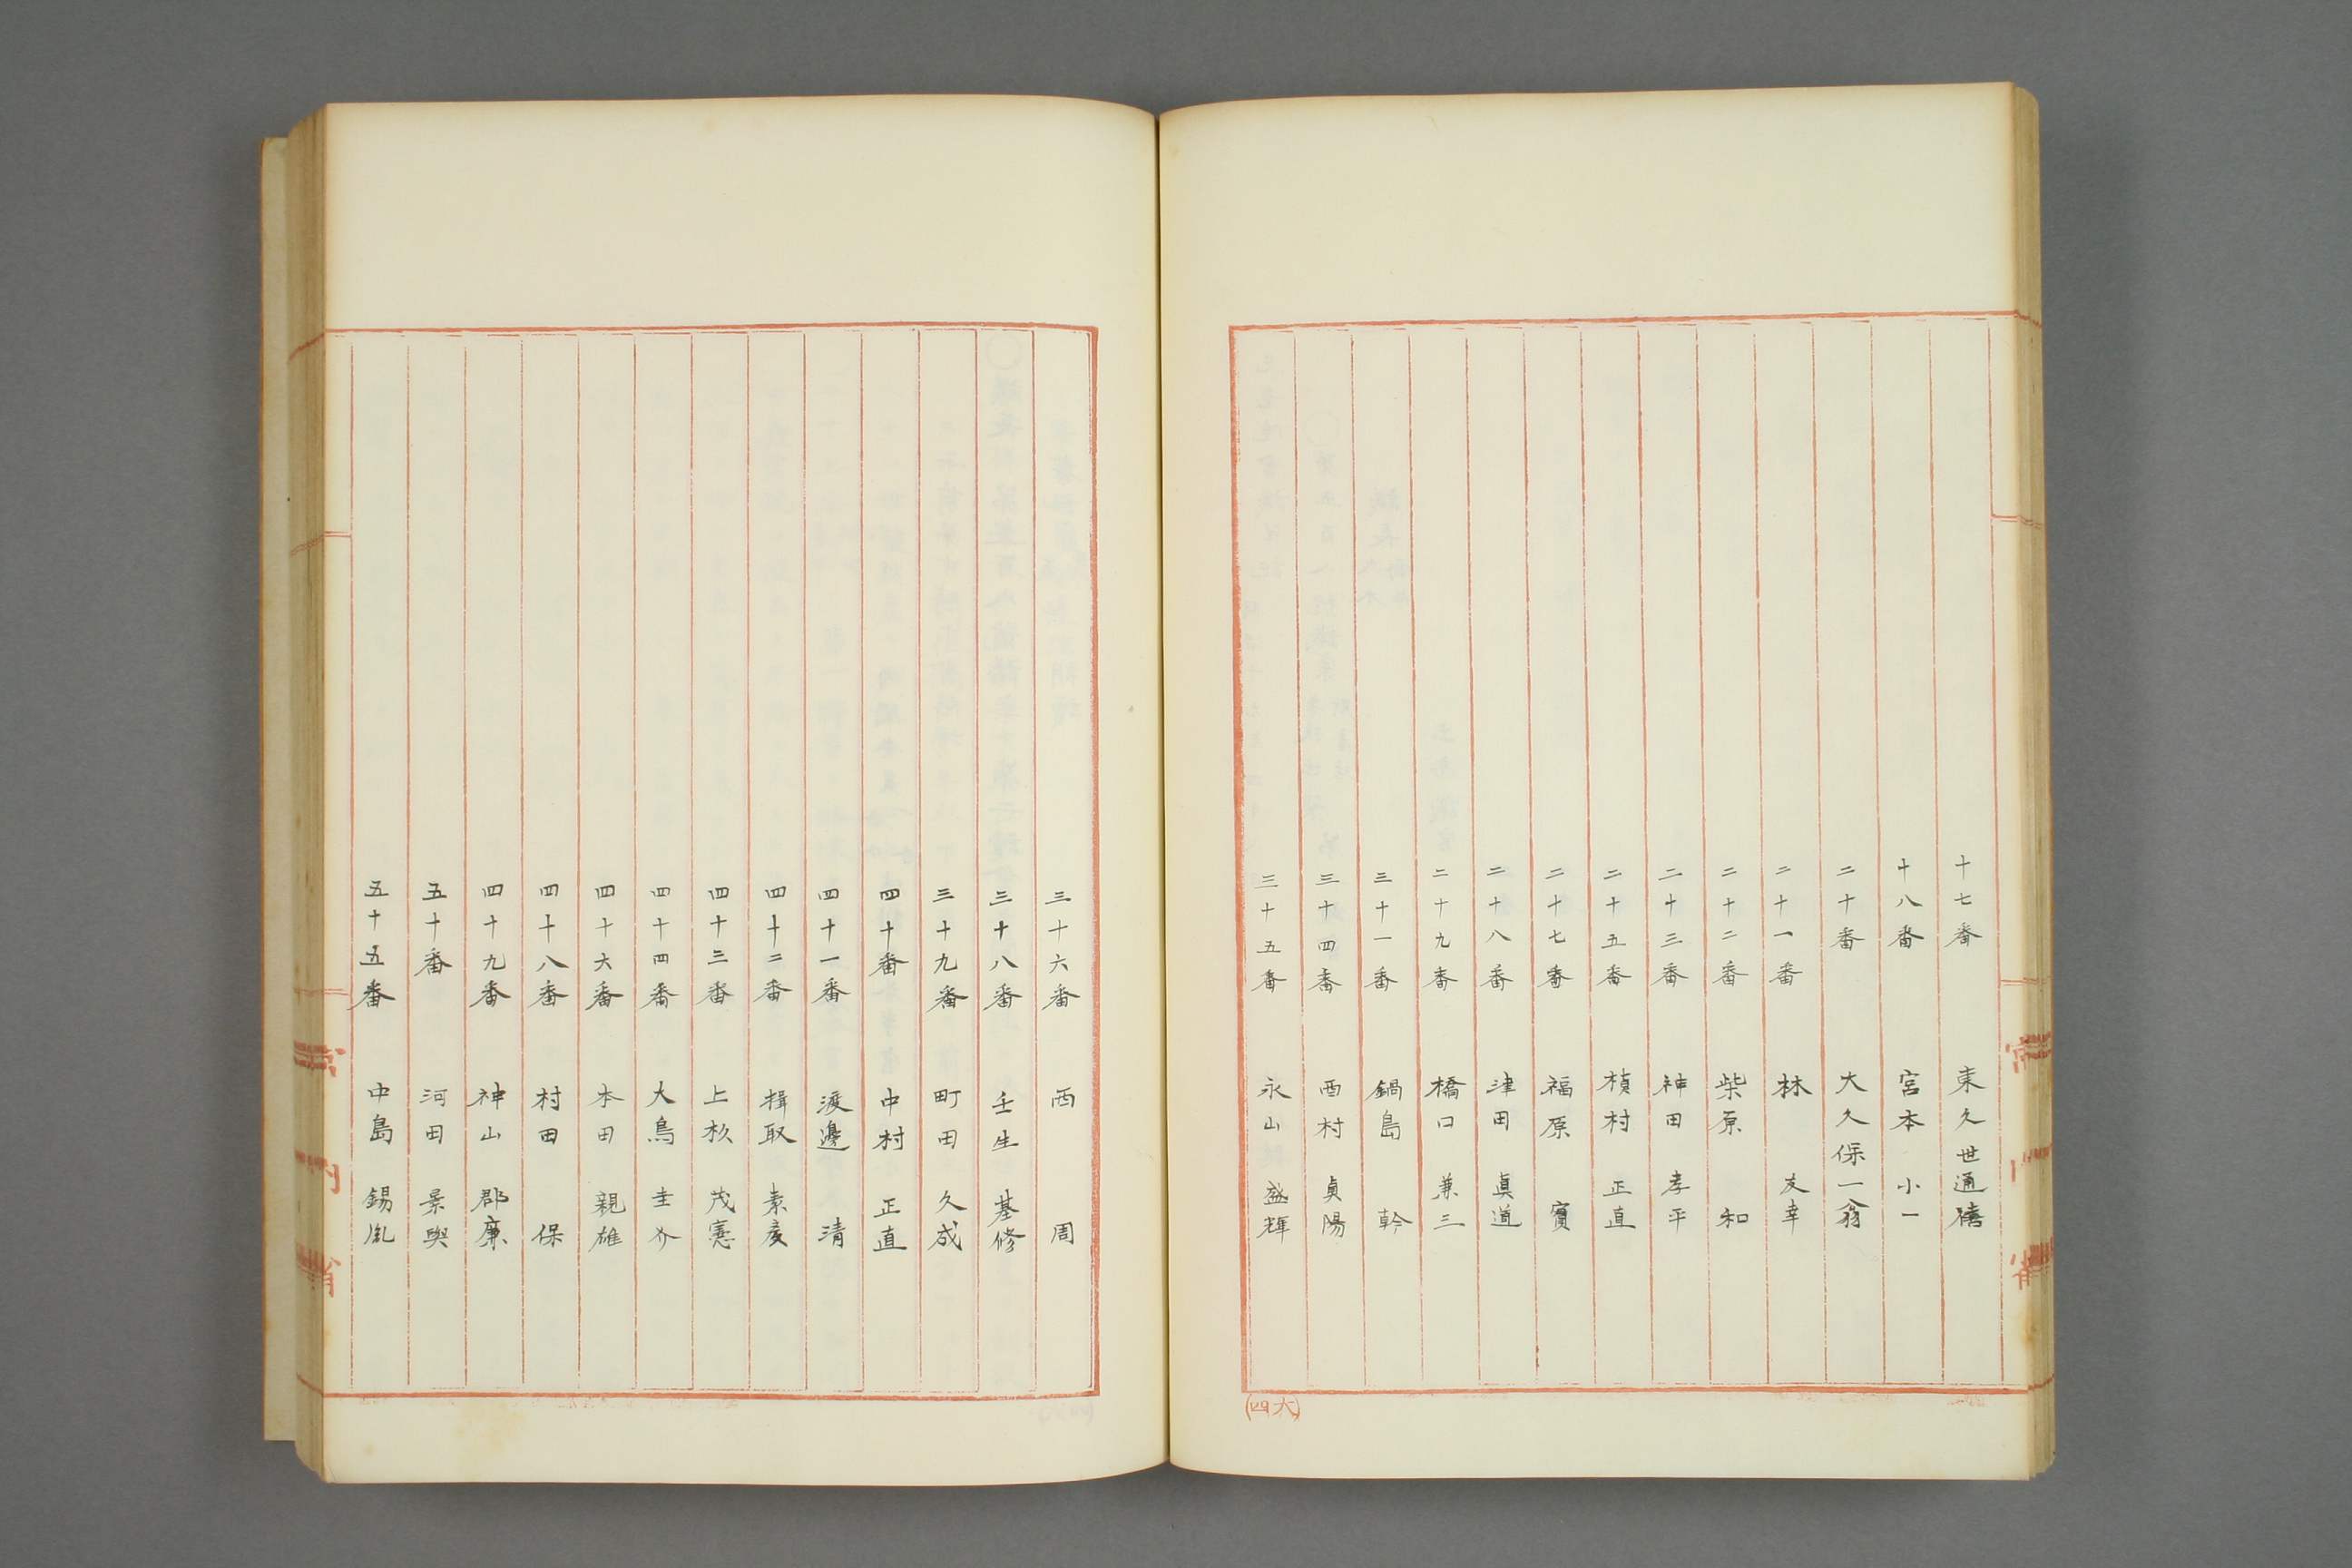 十七番 東久世通禧
十八番 宮本 小一
二十番 大久保一翁
二十一番 林 友幸
二十二番 柴原 和
二十三番 神田 孝平
二十五番 槇村 正直
二十七番 福原 實
二十八番 津田 眞道
二十九番 橋口 兼三
三十一番 鍋島 幹
三十四番 西村 貞陽
三十五番 永山 盛輝
(四大)
三十六番 西 周
三十八番 壬生 基修
三十九番 町田 久成
四十番 中村 正直
四十一番 渡邊 清
四十二番 楫取 素彦
四十三番 上杉 茂憲
四十四番 大鳥 圭介
四十六番 本田 親雄
四十八番 村田 保
四十九番 神山 郡廉
五十番 河田 景與
五十五番 中島 錫胤